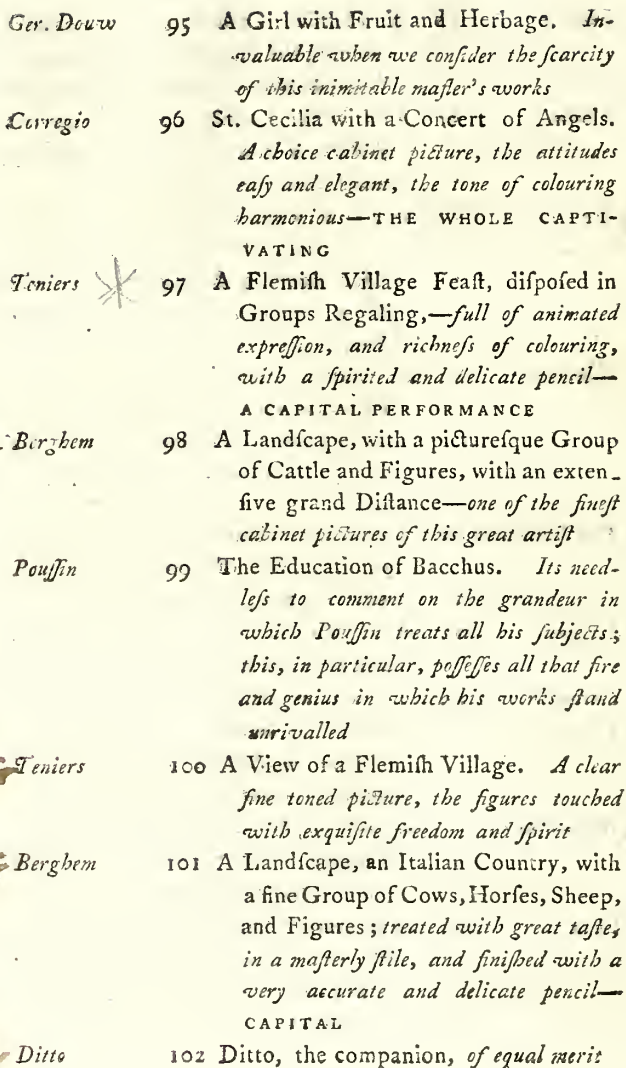 Ger. Douw 95 A Girl with Fruit and Herbage. In-
valuable when we conſider the ſcarcity
of this inimitable maſter's works
Corregio 96 St. Cecilia with a Concert of Angels.
A choice cabinet picture, the attitudes
eaſy and elegant, the tone of colouring
harmonious—THE WHOLE CAPTI-
VATING
Teniers 97 A Flemiſh Village Feaſt, diſpoſed in
Groups Regaling,—full of animated
expreſſion, and richneſs of colouring,
with a ſpirited and delicate pencil—
A CAPITAL PERFORMANCE
Berghem 98 A Landſcape, with a pictureſque Group
of Cattle and Figures, with an exten-
ſive grand Diſtance—one of the fineſt
cabinet pictures of this great artiſt
Pouſſin 99 The Education of Bacchus. Its need-
leſs to comment on the grandeur in
which Pouſſin treats all his ſubjects;
this, in particular, poſſeſſes all that fire
and genius in which his works ſtand
unrivalled
Teniers 100 A View of a Flemiſh Village. A clear
fine toned picture, the figures touched
with exquiſite freedom and ſpirit
Berghem 101 A Landſcape, an Italian Country, with
a fine Group of Cows, Horſes, Sheep,
and Figures; treated with great taſte,
in a maſterly ſtile, and finiſhed with a
very accurate and delicate pencil—
CAPITAL
Ditto 102 Ditto, the companion, of equal merit